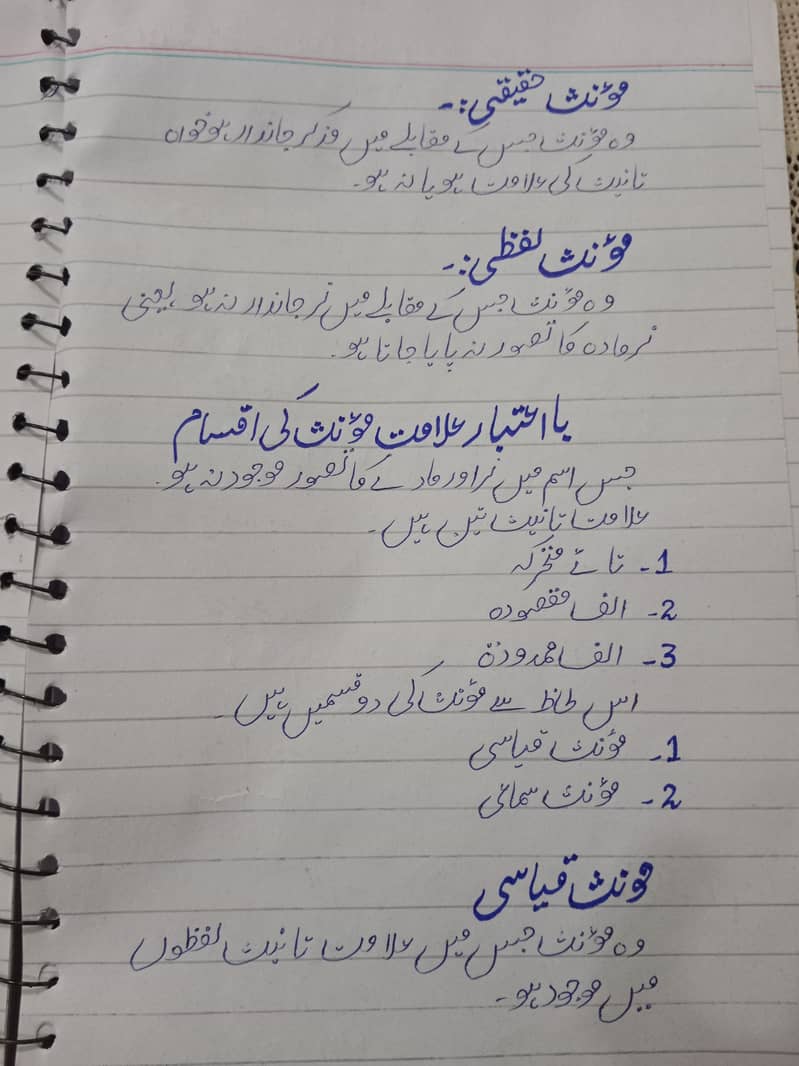 مؤنث حقیقی:-
وہ مؤنث جس کے مقابلے میں مذکر جاندار ہو خواہ
تانیث کی علامت ہو یا نہ ہو۔
مؤنث لفظی:-
وہ مؤنث جس کے مقابلے میں نر جاندار نہ ہو یعنی
نر مادہ کا تصور نہ پایا جاتا ہو۔
بااعتبار علامت مؤنث کی اقسام
جس اسم میں نر اور مادے کا تصور موجود نہ ہو۔
علامت تانیث تین ہیں۔
1- تائے متحرکہ
2- الف مقصودہ
3- الف ممدودۃ
اس لحاظ سے مؤنث کی دو قسمیں ہیں۔
1- مؤنث قیاسی
2- مؤنث سمائی
مونث قیاسی
وہ مؤنث جس میں علامت تانیث لفظوں
میں موجود ہو۔